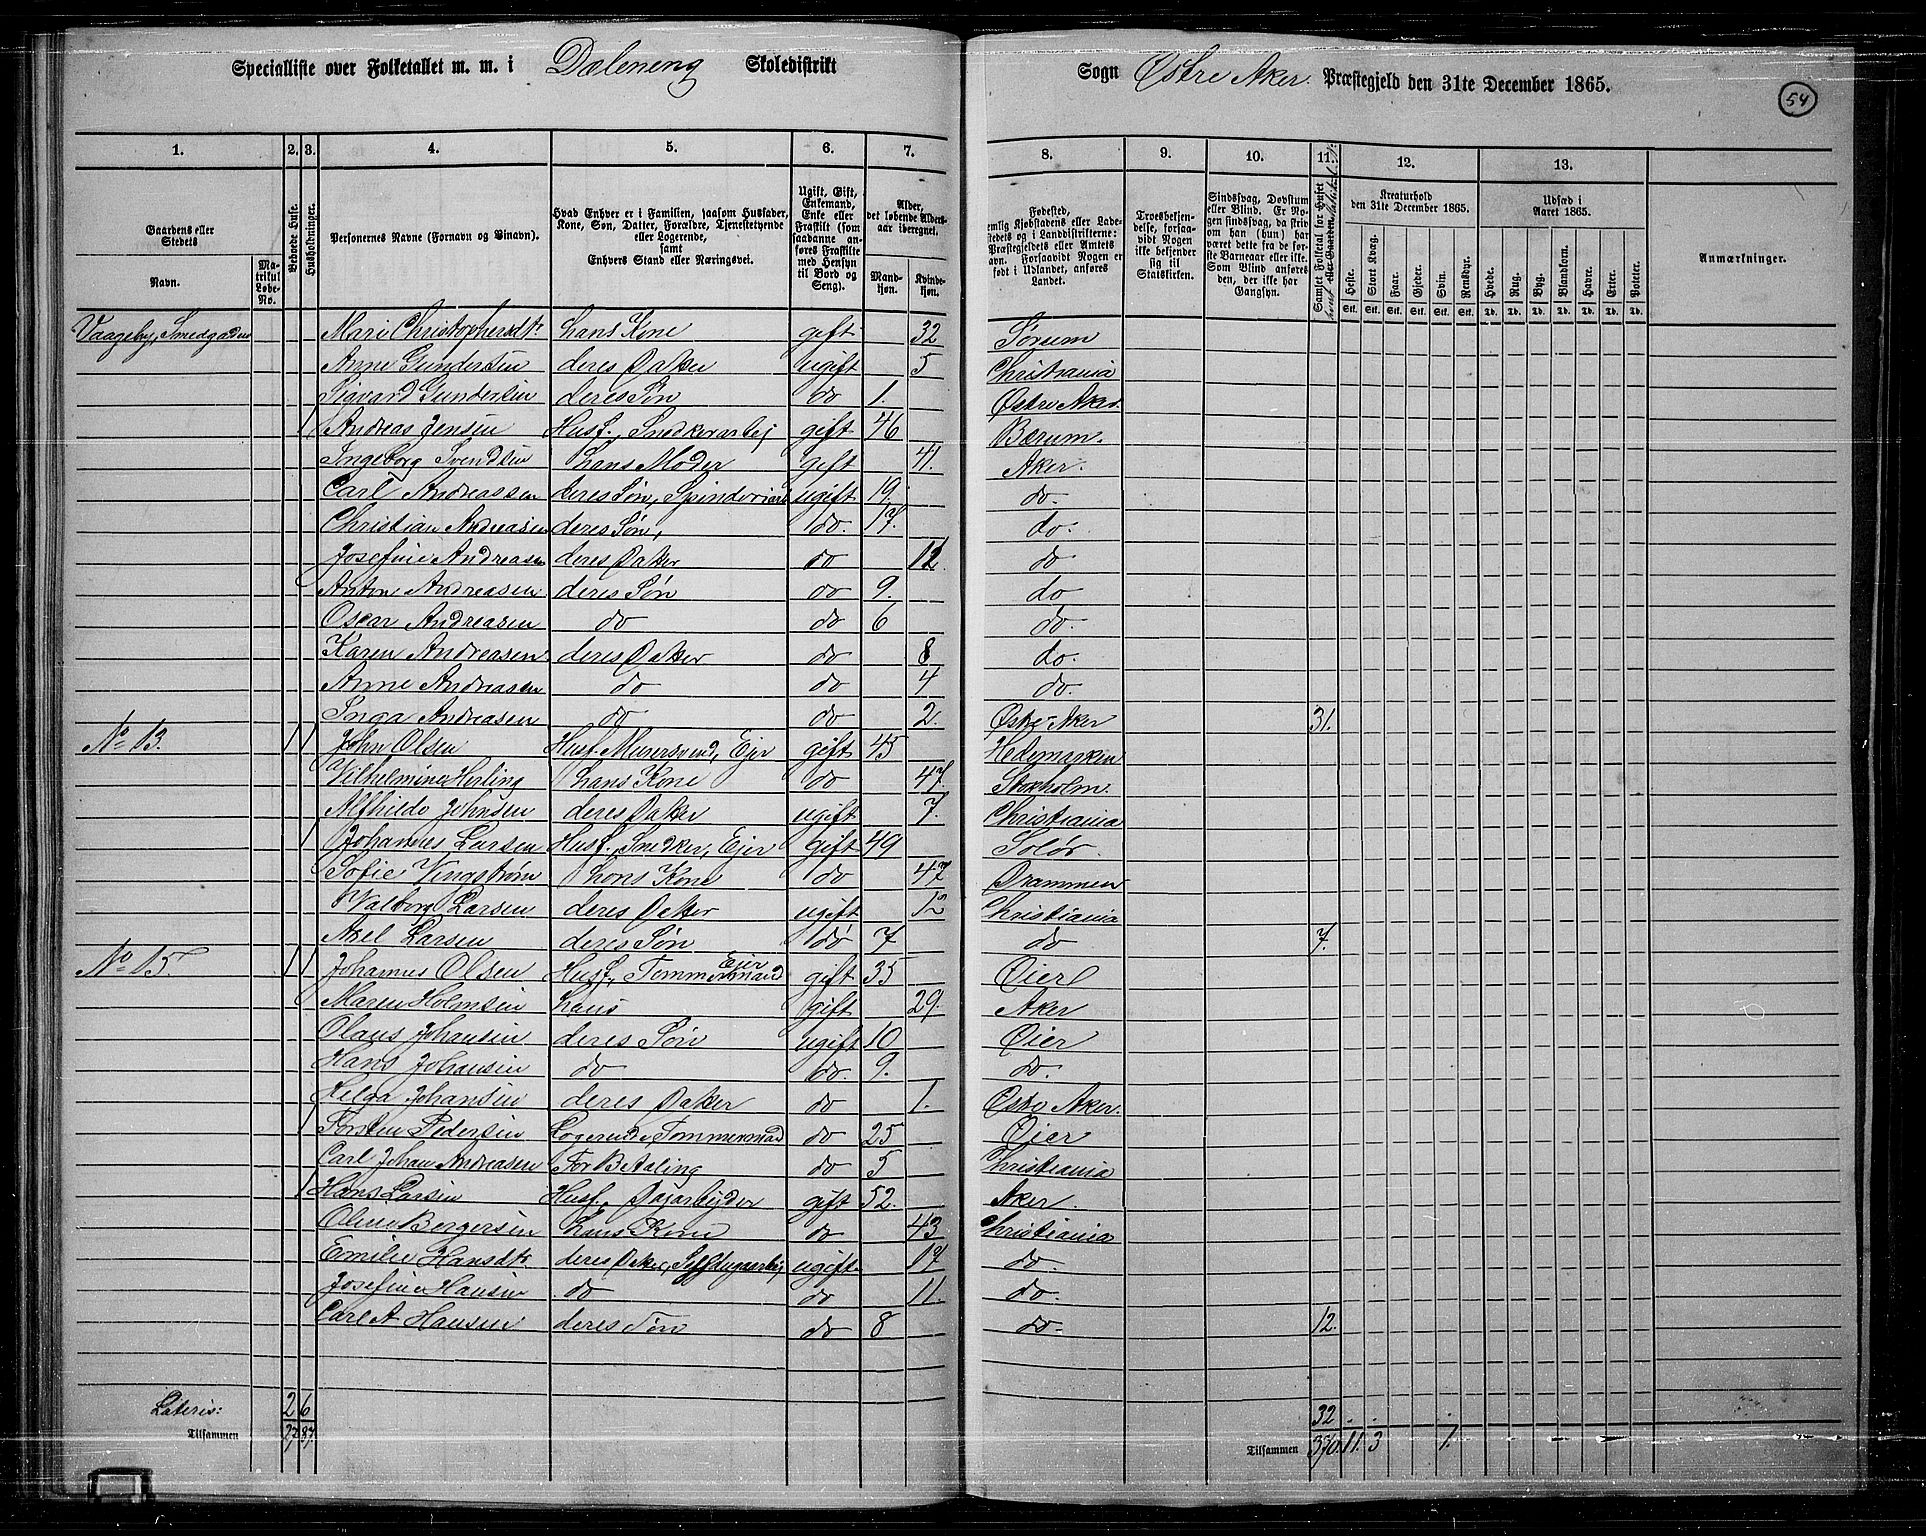 Specialliste over Folketallet m. m. i Dæleneng Skoledistrikt
Sogn Østre Aker Præstegjeld den 31te December 1865.
54
1. 2. 3. 4. 5. 6. 7. 8. 9. 10. 11. 12. 13.
Gaardens eller Stedets
Navn.
Matrikul Løbe-No.
Beboede Huse.
Husholdninger.
Personernes Navne (Fornavn og Binavn).
Hvad Enhver er i Familien, saasom Husfader, Kone, Søn, Datter, Forældre, Tjenestetyende eller Logerende, samt Enhvers Stand eller Næringsvei.
Ugift, Gift, Enkemand, Enke eller Fraskilt (som saadanne anføres Fraskilte med Hensyn til Bord og Seng).
Alder, det løbende Aldersaar iberegnet.
Mandkjøn.
Kvindekjøn.
Fødested,
Troesbekjendelse, forsaavidt Nogen ikke bekjender sig til Statskirken.
Sindssvag, Døvstum eller Blind.
Kreaturhold den 31te December 1865.
Heste. Stort Kvæg. Faar. Gjeder. Svin. Rensdyr.
Udsæd i Aaret 1865.
Hvede. Rug. Byg. Blandkorn. Havre. Erter. Poteter.
Anmærkninger.
Vaageby, Smedgaden Mari Christophersdtr hans Kone gift 32 Sørum
Anne Gundersen deres Datter ugift 5 Christiania
Sigvard Gundersen deres Søn do 1. Østre Aker
1 Andreas Jensen Husf. Snedkerarbej gift 46 Bærum.
Ingeborg Svendsen hans Moder gift 41. Aker.
Carl Andreassen deres Søn, Spinderiarb ugift 19. do.
Christian Andreasen deres Søn, do. 17. do.
Josefine Andreasen deres Datter do 12. do
Anton Andreasen deres Søn do 9. do
Oscar Andreasen do do 6 do.
Karen Andreasen deres Datter do 8 do.
Anne Andreasen do do 4 do.
Inga Andreasen do do 2. Østre Aker 31.
No 13. 1 1 John Olsen Husf. Murersvend, Ejer gift 45 Hedemarken
Vilhelmine Herling hans Kone do 47. Stokholm.
Alfhilde Johnsen deres Datter ugift 7. Christiania
1 Johannes Larsen Husf. Snedker, Ejer gift 49 Solør.
Sofie Vingstrøm hans Kone do 47 Drammen
Valborg Larsen deres Datter ugift 12 Christiania
Axel Larsen deres Søn do 7 do 7.
No 15. 1 1 Johannes Olsen Husf., Tømmermand Ejer gift 35 Øier
Maren Holmsen hans gift 29. Aker
Olaus Johansen deres Søn ugift 10 Øier
Hans Johansen do do. 9. do.
Helga Johansen deres Datter do 1. Østre Aker.
1 Torsten Pedersen Logerende Tømmermand do 25 Øier
Carl Johan Andreasen For Betaling do 5 Christiania
1 Hans Larsen Husf. Dagarbejder gift 52. Aker.
Oline Bergersen hans Kone do 43 Christiania
Emilie Hansdtr. deres Datter, ugift 17 do.
Josefine Hansen do do 11. do.
Carl A Hansen deres Søn do 8 do. 12.
Lateris: 2 6 32 . . .
Tilsammen 87. Tilsammen 370. 11. 3 1.